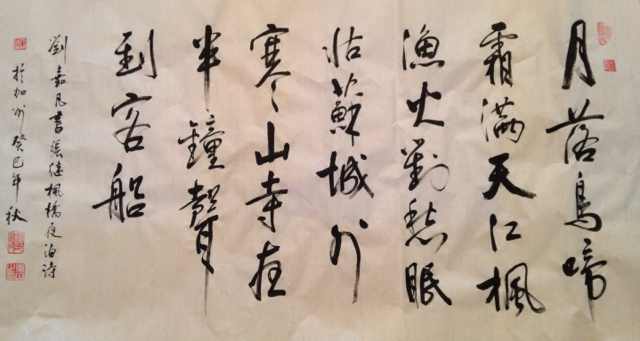 月落烏啼
霜滿天江楓
漁火對愁眠
姑蘇城外
寒山寺夜
半鐘聲
到客船
劉嘉凡書張继楓橋夜泊詩
於加州癸巳年秋